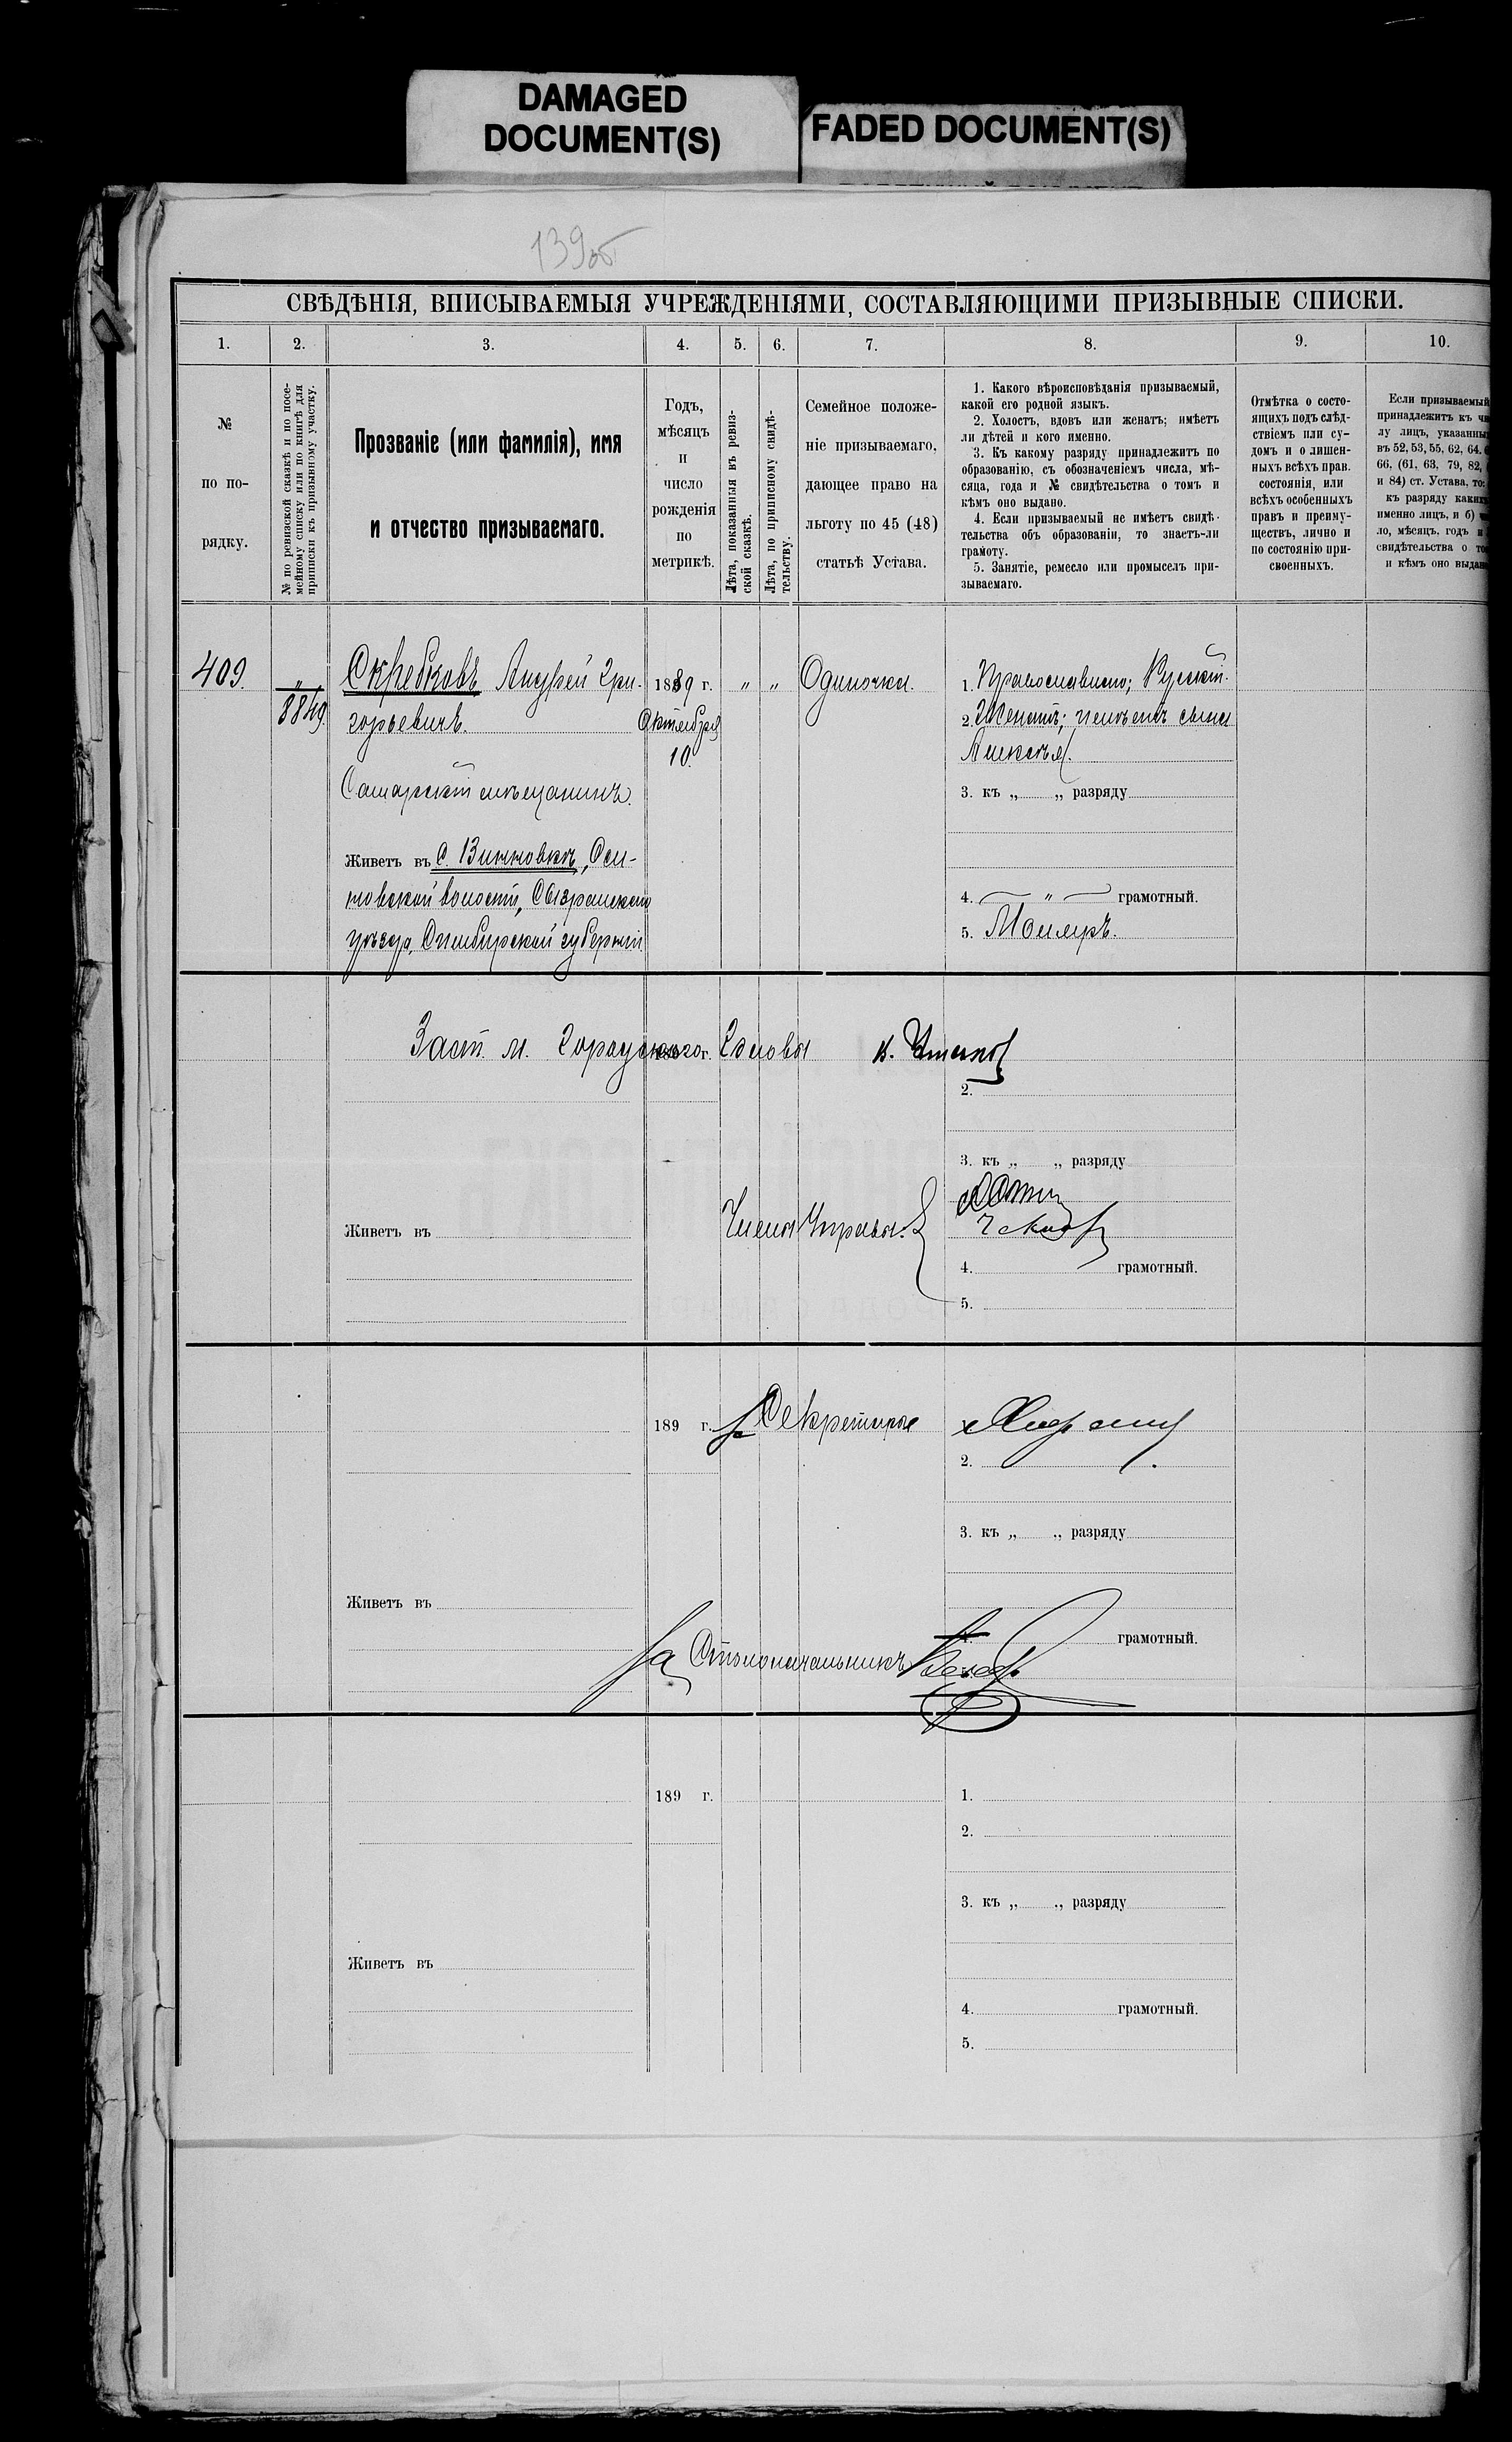 DAMAGED
DOCUMENT(S)
FADED DOCUMENT(S)
139об
СВѢДѢНІЯ, ВПИСЫВАЕМЫЯ УЧРЕЖДЕНІЯМИ, СОСТАВЛЯЮЩИМИ ПРИЗЫВНЫЕ СПИСКИ.
1. 2. 3. 4. 5. 6. 7. 8. 9. 10.
№
по по-
рядку.
№ по ревизской сказкѣ и по посе-
мейному списку или по книгѣ для
приписки къ призывному участку.
Прозваніе (или фамилія), имя
и отчество призываемаго.
Годъ,
мѣсяцъ
и
число
рожденія
по
метрикѣ.
Лѣта, показанныя въ ревиз-
ской сказкѣ.
Лѣта, по приписному свидѣ-
тельству.
Семейное положе-
ніе призываемаго,
дающее право на
льготу по 45 (48)
статьѣ Устава.
1. Какого вѣроисповѣданія призываемый,
какой его родной языкъ.
2. Холостъ, вдовъ или женатъ; имѣетъ
ли дѣтей и кого именно.
3. Къ какому разряду принадлежитъ по
образованію, съ обозначеніемъ числа, мѣ-
сяца, года и № свидѣтельства о томъ и
кѣмъ оно выдано.
4. Если призываемый не имѣетъ свидѣ-
тельства объ образованіи, то знаетъ-ли
грамоту.
5. Занятіе, ремесло или промыселъ при-
зываемаго.
Отмѣтка о состо-
ящихъ подъ слѣд-
ствіемъ или су-
домъ и о лишен-
ныхъ всѣхъ прав.
состоянія, или
всѣхъ особенныхъ
правъ и преиму-
ществъ, лично и
по состоянію при-
своенныхъ.
Если призываемый
принадлежитъ къ чи
лу лицъ, указанны
въ 52, 53, 55, 62, 64,
66, (61, 63, 79, 82,
и 84) ст. Устава, то:
къ разряду какихъ
именно лицъ, и б)
ло, мѣсяцъ, годъ и
свидѣтельства о то
и кѣмъ оно выдан
409.
„
8849
Скребковъ Андрей Гри-
горьевичъ.
Самарскій мѣщанинъ.
Живетъ въ с. Винновкѣ, Оси-
новской волости, Сызранскаго
уѣзда, Симбирской губерніи
1889 г.
Октября
10.
„ „
Одиночка.
1. Православнаго; Русскій.
2. Женатъ; имѣетъ сына
Алексѣя.
3. къ „ „ разряду
4. „ грамотный.
5. Маляръ.
Заст. м. Городского Головы
2.
3. къ „ „ разряду
Члены Управы.
Живетъ въ
4. грамотный.
5.
189 г.
за Секретаря
2.
3. къ „ „ разряду
Живетъ въ
грамотный.
За Столоначальникъ
189 г.
1.
2.
3. къ „ „ разряду
Живетъ въ
4. грамотный.
5.